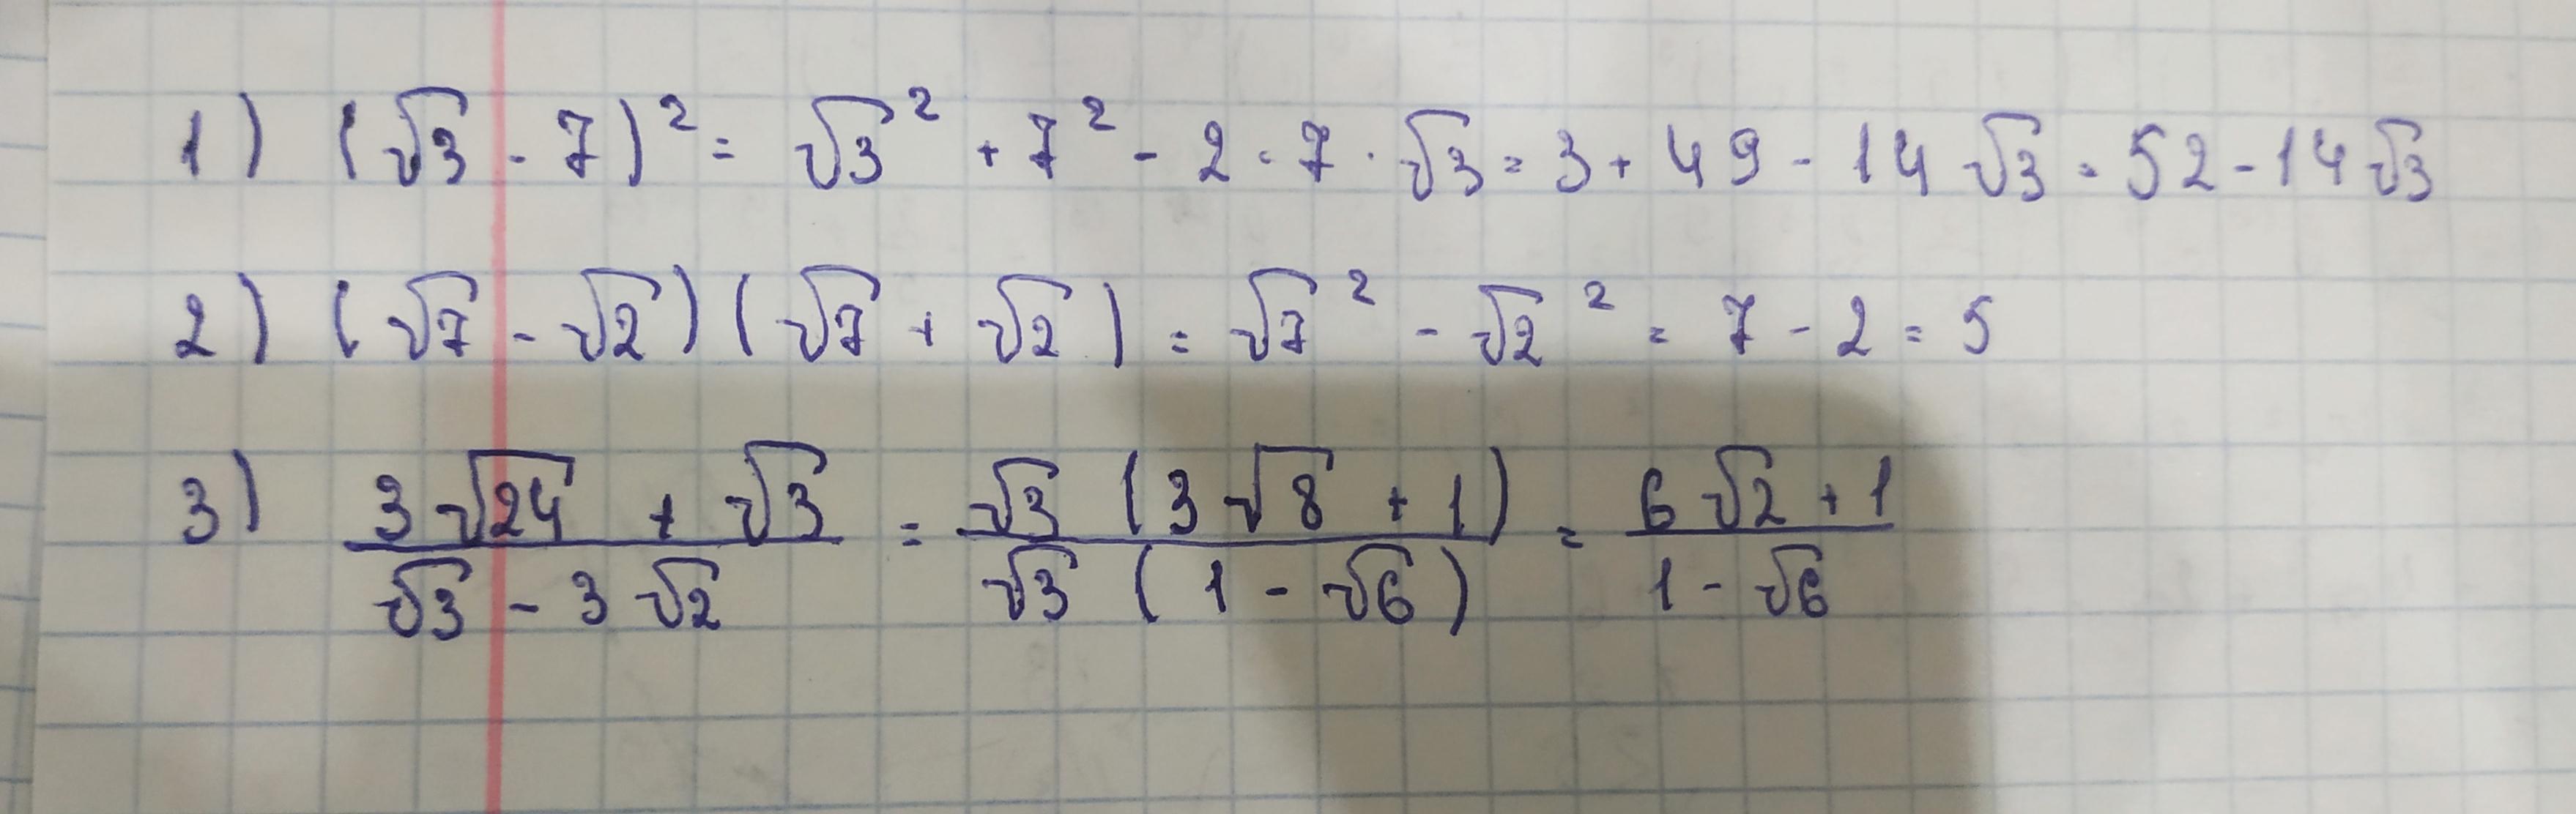 1) (√3 - 7)² = √3² + 7² - 2 · 7 · √3 = 3 + 49 - 14√3 = 52 - 14√3
2) (√7 - √2)(√7 + √2) = √7² - √2² = 7 - 2 = 5
3) (3√24 + √3)/(√3 - 3√2) = (√3 (3√8 + 1))/(√3 (1 - √6)) = (6√2 + 1)/(1 - √6)